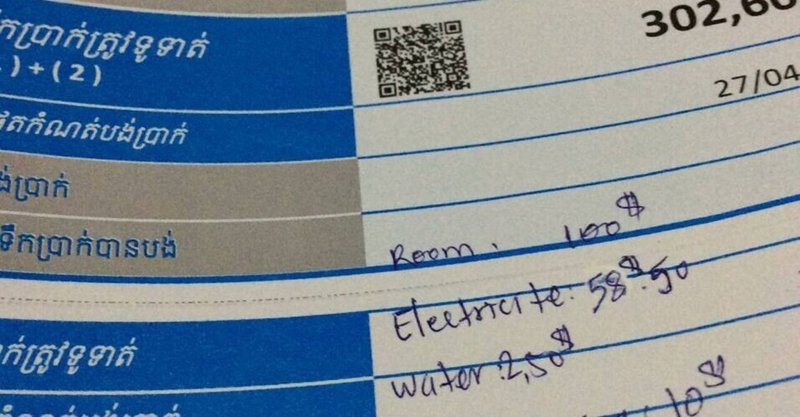 ក់ប្រាក់ត្រូវទូទាត់
) + ( 2 )
302,60
27/04
កំណត់បង់ប្រាក់
ង់ប្រាក់
ទឹកប្រាក់បានបង់
Room . 100$
Electricite: 58$.50
ក់ត្រូវទូទាត់
water: 2,50$
10$